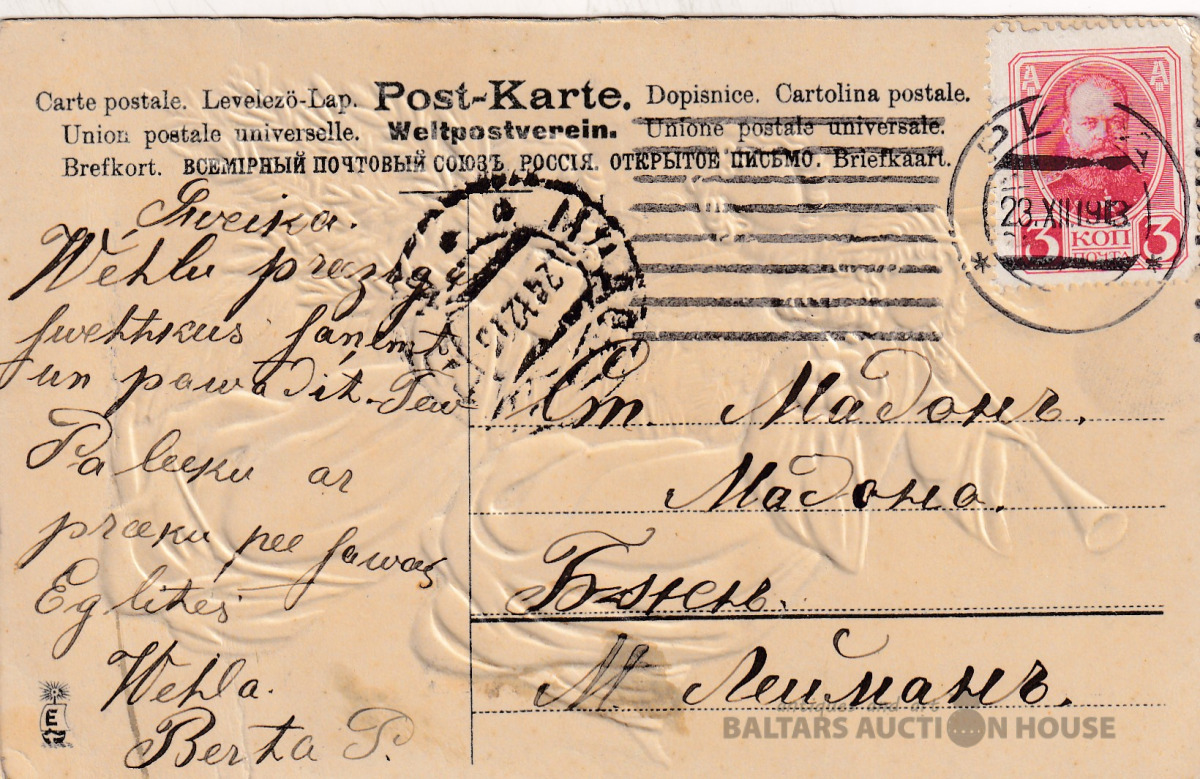 Carte postale. Levelezö-Lap. Post-Karte. Dopisnice. Cartolina postale.
Union postale universelle. Weltpostverein. Unione postale universale.
Brefkort. ВСЕМІРНЫЙ ПОЧТОВЫЙ СОЮЗЪ. РОССІЯ. ОТКРЫТОЕ ПИСЬМО. Briefkaart.
23.XII.1913
3 КОП 3
ПОЧТА
24 12 13
Sweika.
Wehlu preezig
swehtkus sanemt
un pawadit. Tew
Pa leeku ar
preeku pee sawas
Eglites
Wehla.
Berta P.
Ст. Мадонъ.
Мадона.
Б-жнѣ.
М. Лейманъ.
BALTARS AUCTION HOUSE